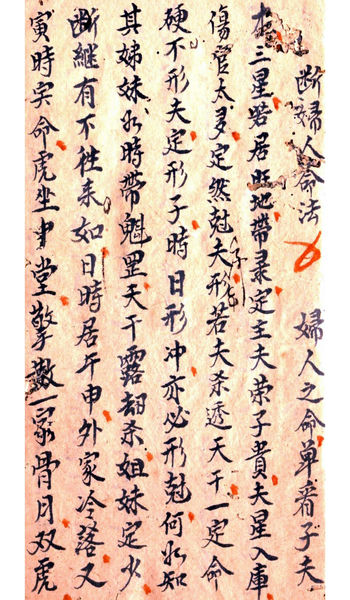 断婦人命法 婦人之命單看子夫
才三星若居旺地帶彔定主夫荣子貴夫星入庫
傷官太多定然尅夫形子若夫杀透天干一定命
硬不形夫定形子時日形冲亦必形尅何以知
其姊妹如時帶魁罡天干露刼杀姐妹定少
断继有不往来如日時居午申外家冷落又
寅時实命虎坐中堂擎數一家骨月双虎